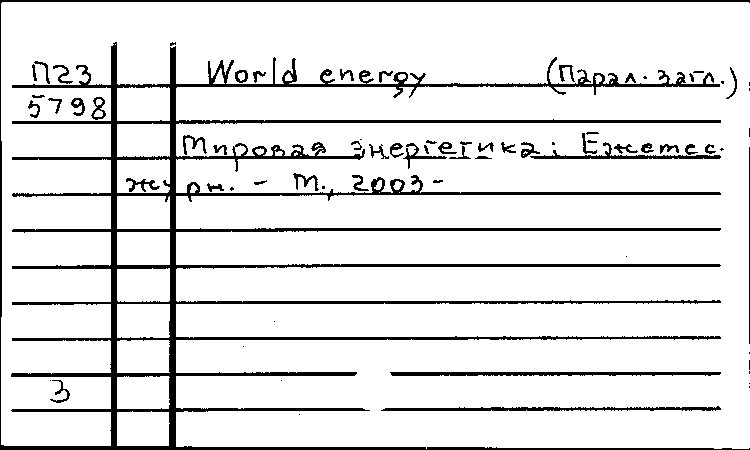 П23 World energy (Парал. загл.)
5798
Мировая энергетика: Ежемес.
журн. - М., 2003-
3